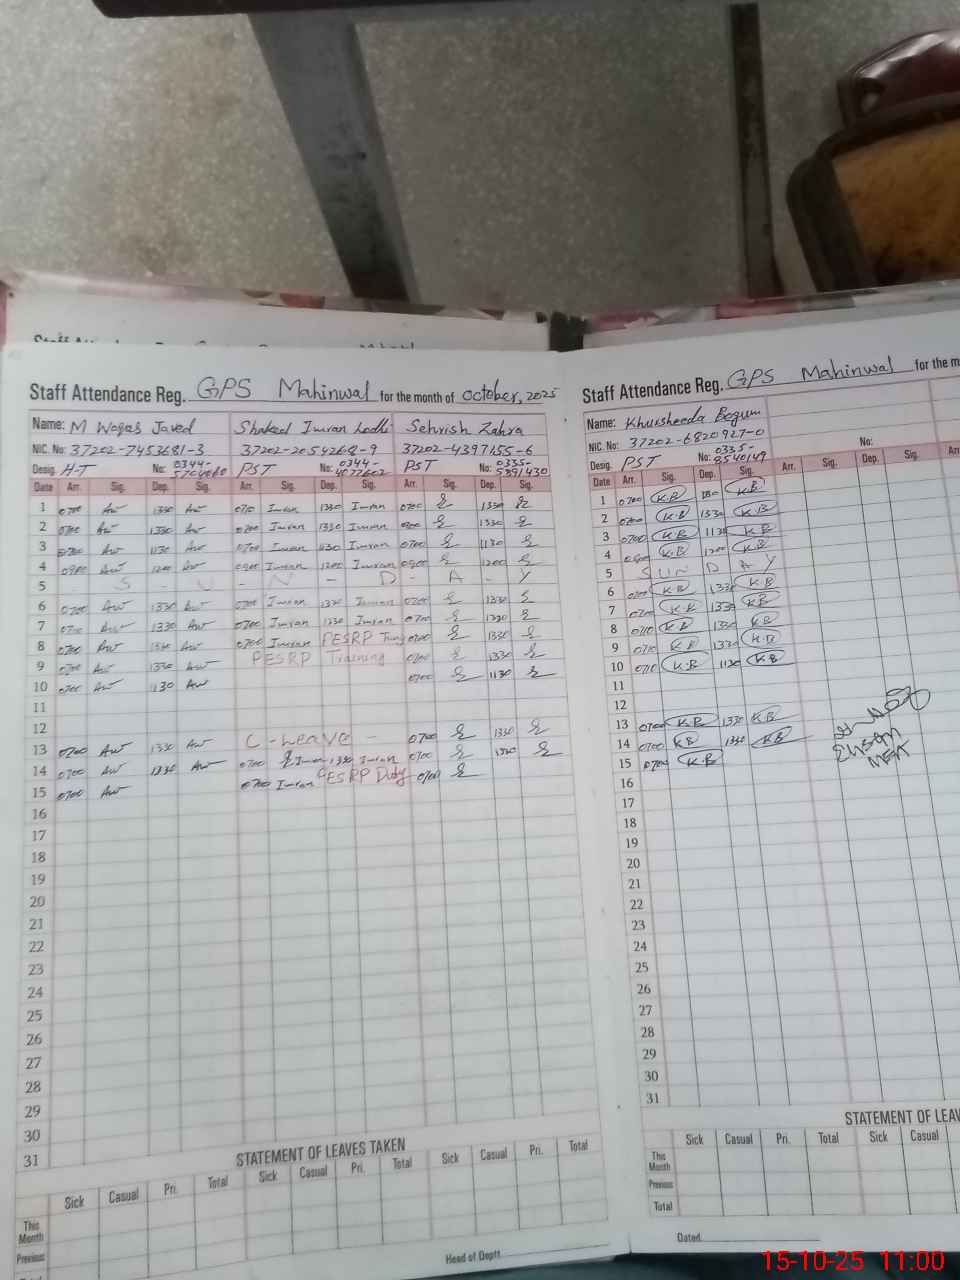 Staff Attendance Reg. GPS Mahinwal for the month of October, 2025
Name: M Waqas Javed Shakeel Imran Lodhi Sehrish Zahra
NIC. No: 37202-7453681-3 37202-2054268-9 37202-4397155-6
Desig. H-T No: 0344- PST No: 0344- PST No: 0335-
5391430
Date Arr. Sig. Dep. Sig. Arr. Sig. Dep. Sig. Arr. Sig. Dep. Sig.
1 0700 1330 0710 Imran 1330 Imran 0700 1330
2 0700 1330 0700 Imran 1330 Imran 1330
3 0700 1130 0700 Imran 1130 Imran 0700 1130
4 0900 1200 0900 Imran 1200 Imran 0900 1200
5 S - U - N - D - A - Y
6 0700 1330 0700 Imran 1330 Imran 0700 1330
7 0700 1330 0700 Imran 1330 Imran 0700 1330
8 0700 1330 0700 Imran PESRP 0700 1330
9 0700 1330 PESRP Training 0700 1330
10 0700 1130 0700 1130
11
12
13 0700 1330 C-Leave - 0700 1330
14 0700 1330 0700 Imran 1330 Imran 0700 1330
15 0700 0700 Imran PESRP Duty 0700
16
17
18
19
20
21
22
23
24
25
26
27
28
29
30
31
STATEMENT OF LEAVES TAKEN
Sick Casual Pri. Total Sick Casual Pri. Total Sick Casual Pri. Total
This Month
Previous
Total
Head of Deptt
Staff Attendance Reg. GPS Mahinwal for the m
Name: Khursheeda Begum
NIC. No: 37202-6820927-0 No:
Desig. PST No: 0335-
8540149
Date Arr. Sig. Dep. Sig. Arr. Sig. Dep. Sig.
1 0700 K.B 1330 K.B
2 0700 K.B 1330 K.B
3 0700 K.B 1130 K.B
4 0900 K.B 1200 K.B
5 S U N D A Y
6 0700 K.B 1330 K.B
7 0700 K.B 1330 K.B
8 0710 K.B 1330 K.B
9 0710 K.B 1330 K.B
10 0710 K.B 1130 K.B
11
12
13 0700 K.B 1330 K.B
14 0700 K.B 1330 K.B
15 0700 K.B
16
17
18
19
20
21
22
23
24
25
26
27
28
29
30
31
STATEMENT OF LEAV
Sick Casual Pri. Total Sick Casual
This Month
Previous
Total
Dated
15-10-25 11:00